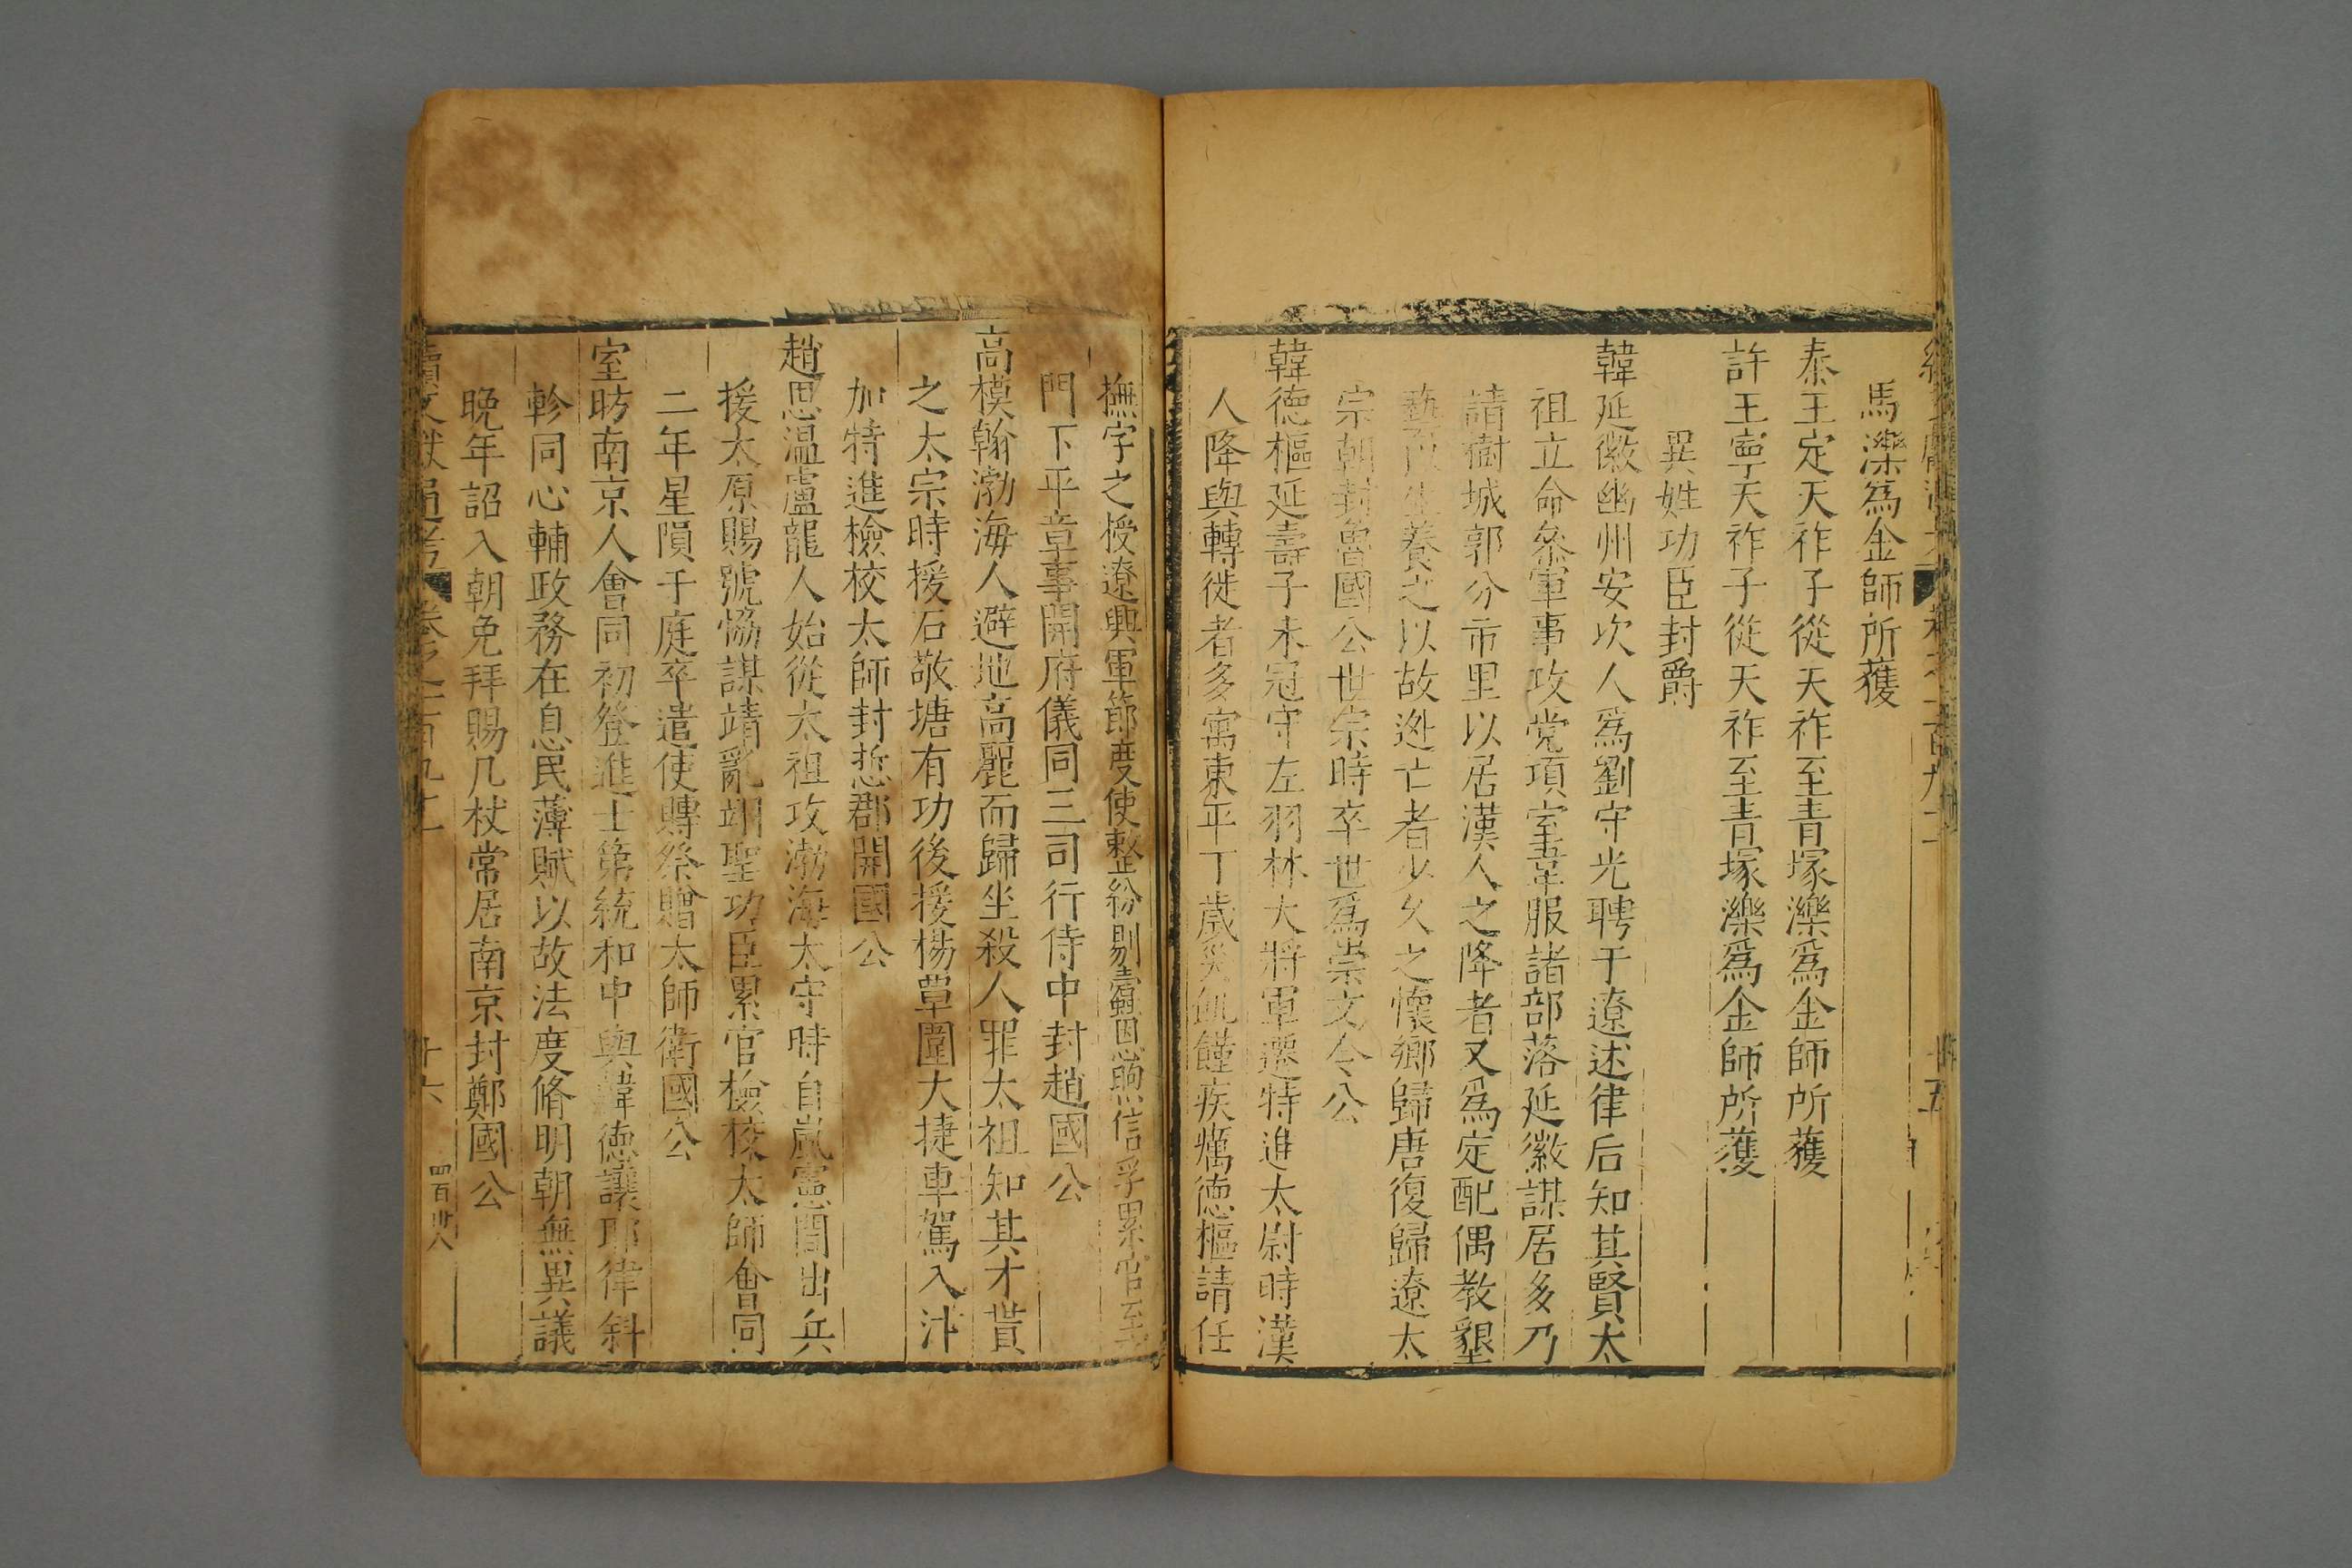 馬濼為金師所獲
泰王定天祚子從天祚至青塚濼為金師所獲
許王寧天祚子從天祚至青塚濼為金師所獲
異姓功臣封爵
韓延徽幽州安次人為劉守光聘于遼述律后知其賢太
祖立命叅軍事攻党項室韋服諸部落延徽謀居多乃
請樹城郭分市里以居漢人之降者又為定配偶教墾
藝以生養之以故逃亡者少久之懷鄉歸唐復歸遼太
宗朝封魯國公世宗時卒世為崇文令公
韓德樞延壽子未冠守左羽林大將軍遷特進太尉時漢
人降與轉徙者多寓東平丁歲災飢饉疾癘德樞請任
撫字之授遼興軍節度使整紛剔蠹恩煦信孚累官至
門下平章事開府儀同三司行侍中封趙國公
高模翰渤海人避地高麗而歸坐殺人罪太祖知其才貰
之太宗時援石敬塘有功後援楊覃圍大捷車駕入汴
加特進檢校太師封悊郡開國公
趙思温盧龍人始從太祖攻渤海太守時自嵐憲間出兵
援太原賜號恊謀靖亂翊聖功臣累官檢校太師會同
二年星隕于庭卒遣使賻祭贈太師衛國公
室昉南京人會同初登進士第統和中與韓德讓耶律斜
軫同心輔政務在息民薄賦以故法度脩明朝無異議
晚年詔入朝免拜賜几杖常居南京封鄭國公
續文獻通考 卷之一百九十二 十六 四百卅八